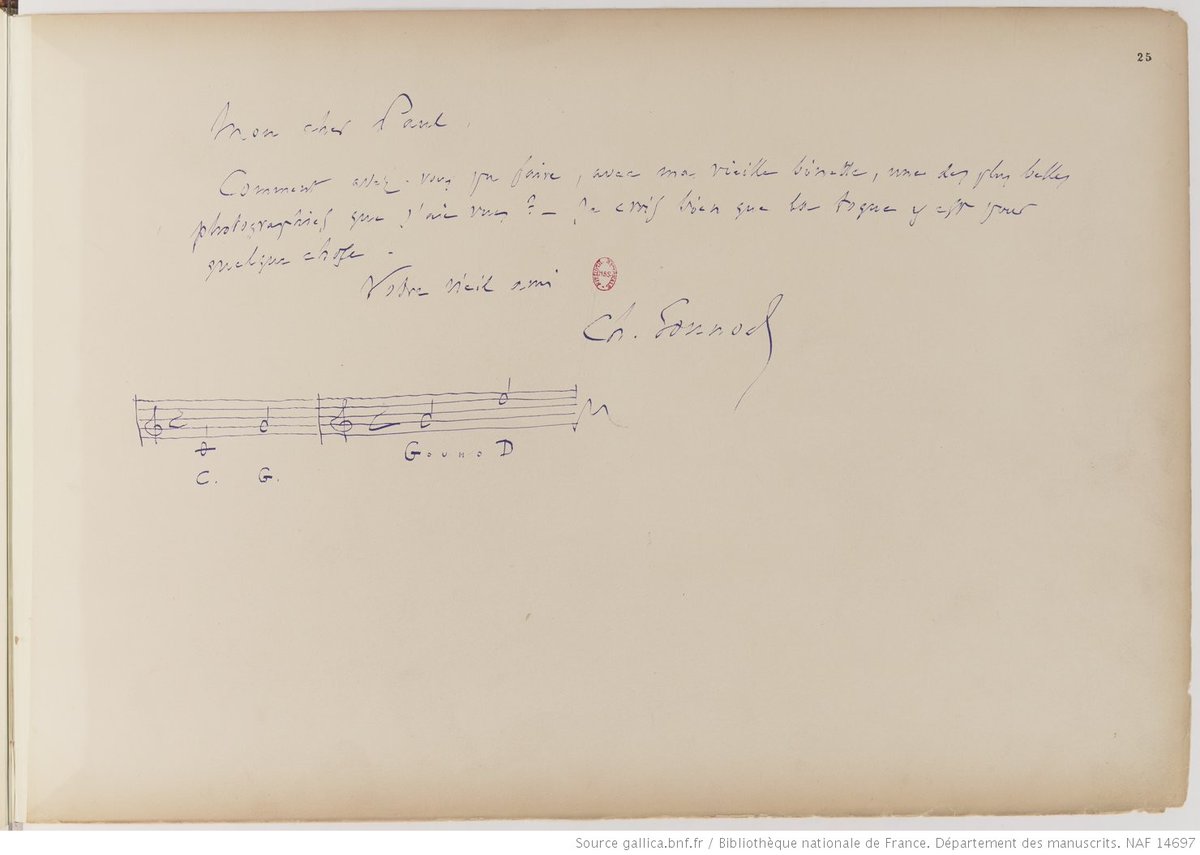 25
Mon cher Paul.
Comment avez-vous pu faire, avec ma vieille binette, une des plus belles
photographies que j'aie vues ? — Je crois bien que la toque y est pour
quelque chose.
Votre vieil ami
Ch. Gounod
C. G.
G o u n o D
Source gallica.bnf.fr / Bibliothèque nationale de France. Département des manuscrits. NAF 14697